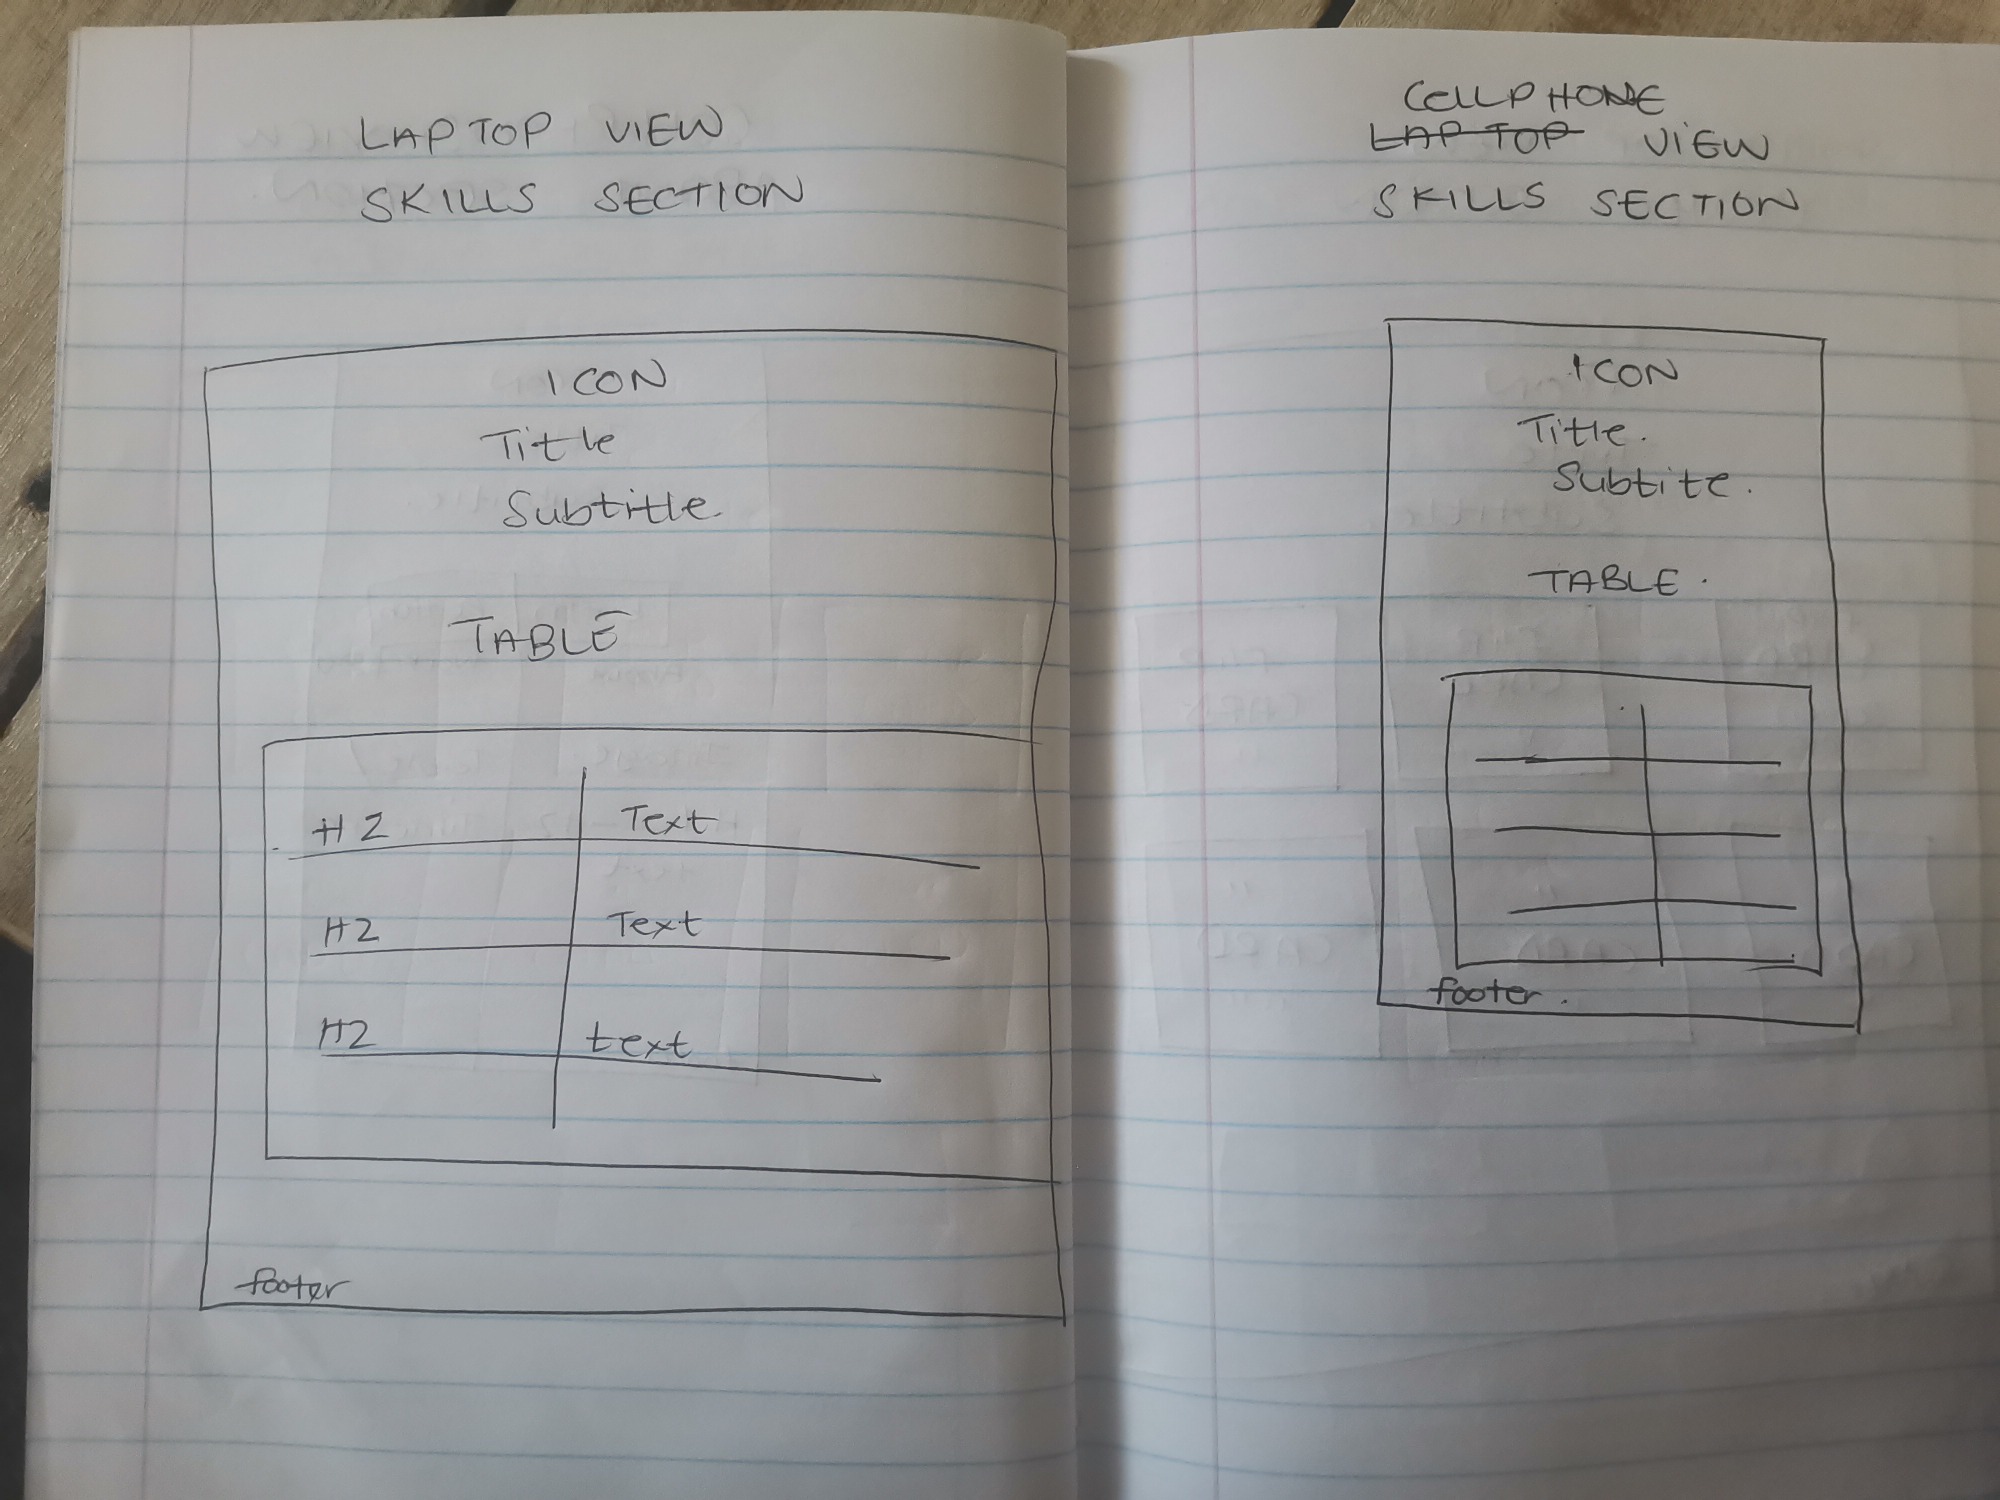 LAPTOP VIEW
SKILLS SECTION
ICON
Title
Subtitle
TABLE
H2 Text
H2 Text
H2 text
footer
CELLPHONE
LAPTOP VIEW
SKILLS SECTION
ICON
Title.
Subtite.
TABLE.
footer.